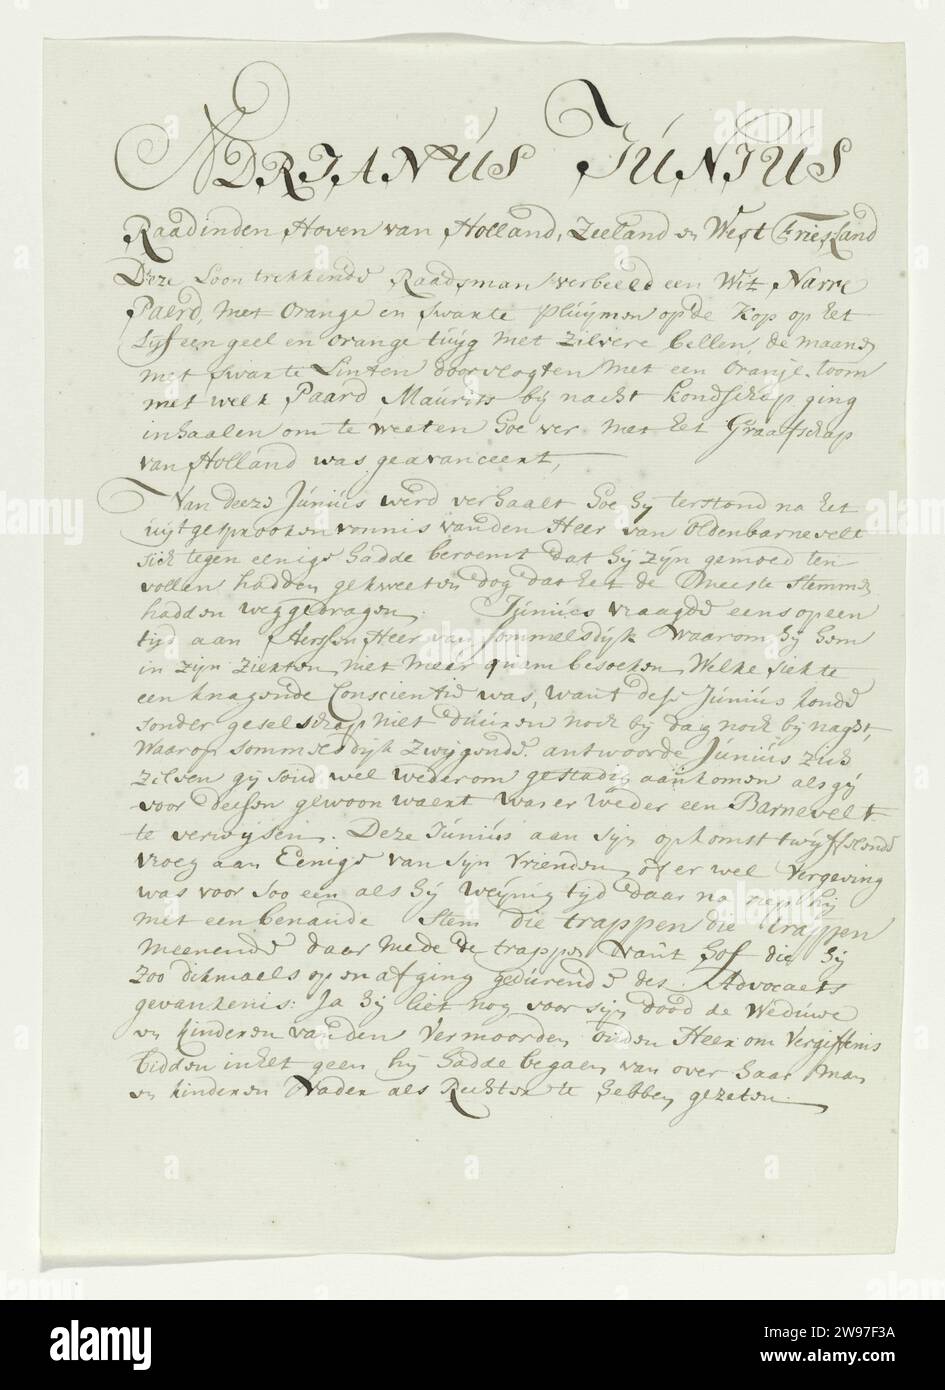 ADRIANÚS JÚNIÚS
Raad inden Hoven van Holland, Zeeland en West Friesland
Deze Loon trekkende Raadsman verbeeld een Wit Narre
Paerd, met orange en swarte pluijmen op de Kop op het
Lijf een geel en orange tuijg met zilvere bellen, de maanen
met swarte Linten doorvlogten met een Oranje toom
met welk Paard Maúrits bij nacht kondschap ging
inhaalen om te weeten hoe ver met het Graafschap
van Holland was geavanceert,
Van deeze Júniús werd verhaalt hoe hij terstond na het
uijtgesprooken vonnis van den Heer van Oldenbarnevelt
sich tegen eenige hadde beroemt dat hij zijn gemoed ten
vollen hadden gekweeten dog dat het de meeste stemmen
hadden weggedragen. Júniús vraagde eens op een
tijd aan Aerssen Heer van Sommelsdijk waarom hij hem
in zijn ziekten niet meer quam besoeken, Welke siekte
een knagende Conscientie was, want dese Júniús konde
sonder geselschap niet dúúren noch bij dag noch bij nagt,
Waarop Sommelsdijk zwijgende antwoorde Júniús zich
zelven gij soud wel wederom gestadig aankomen als gij
voor deesen gewoon waert was er weder een Barnevelt
te verwijsen. Deze Júniús aan sijn opkomst twijffelende
vroeg aan Eenige van sijn vrienden of er wel Vergeving
was voor soo een als hij weijnig tijd daar na riep hij
met een benaude Stem die trappen die trappen
meenende daar mede de trappen van't hof die hij
zoo dikmaels op en af ging gedúrende des Advocaets
gevankenis: Ja hij liet nog voor sijn dood de Wedúwe
en kinderen van den Vermoorden ouden Heer om Vergiffenis
bidden in het geen hij hadde begaen van over haar Man
en kinderen Vader als Rechter te hebben gezeten.
alamy
Image ID: 2W97F3A
www.alamy.com